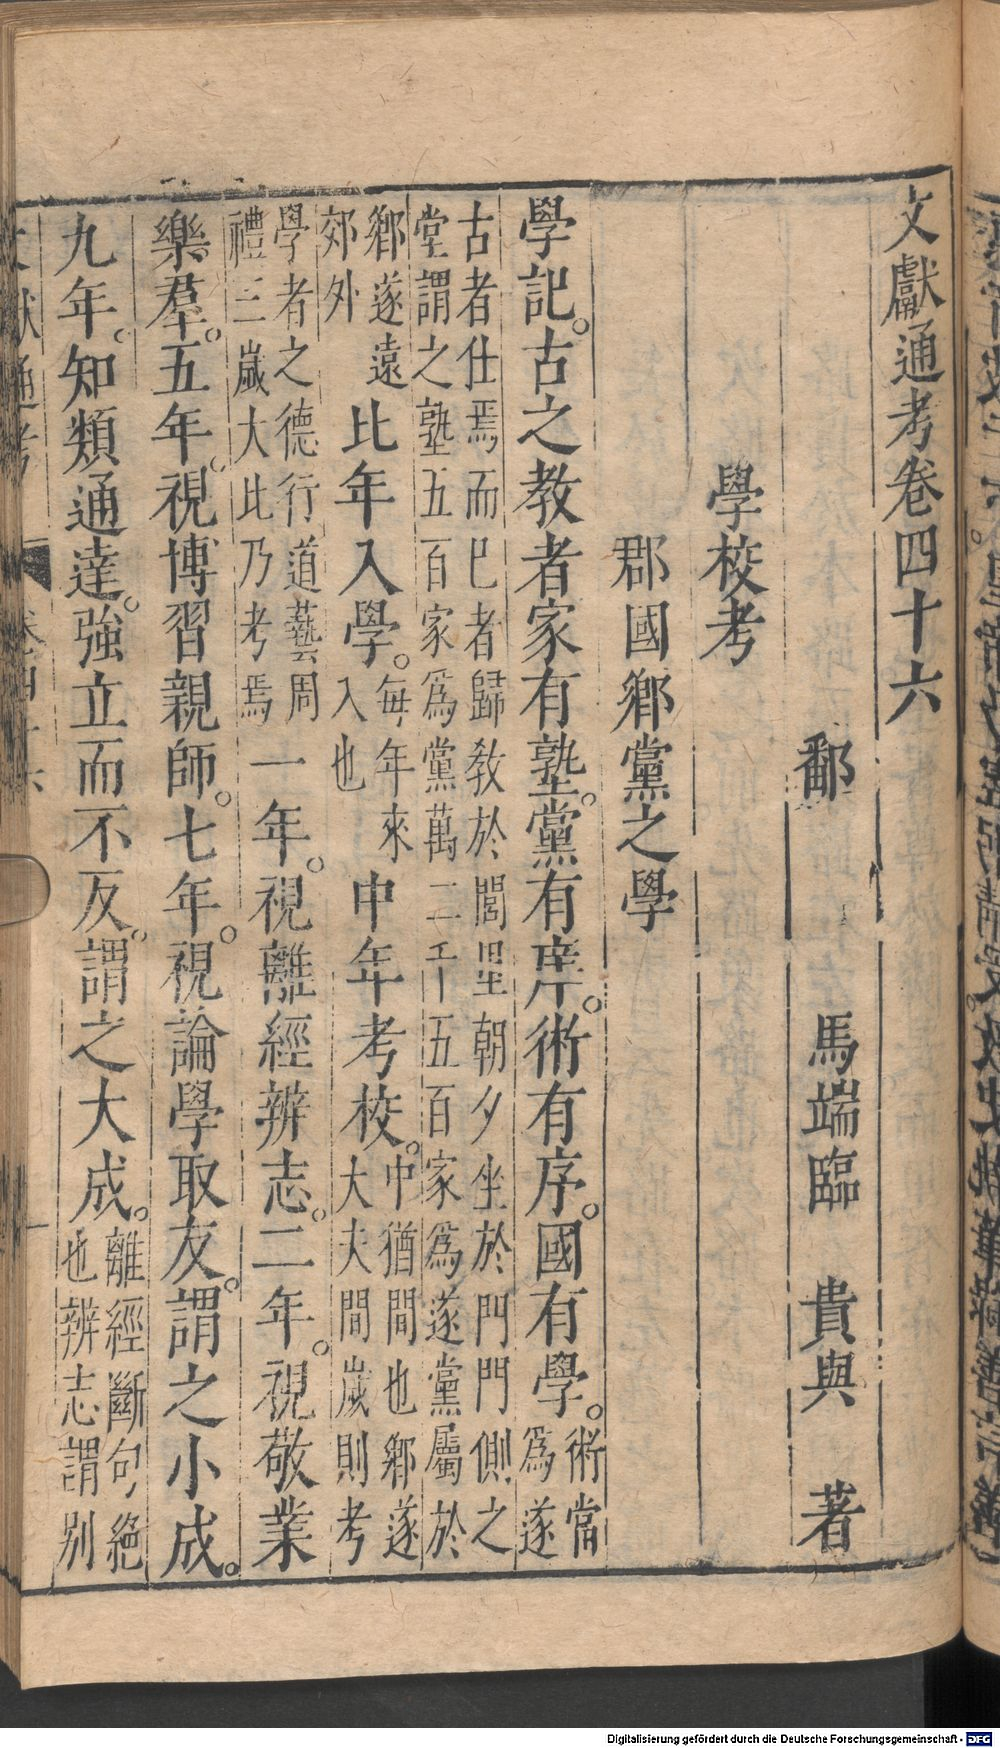 文獻通考卷四十六
鄱 馬端臨 貴與 著
學校考
郡國鄉黨之學
學記。古之教者家有塾。黨有庠。術有序。國有學。術當
爲遂
古者仕焉而已者歸敎於閭里朝夕坐於門門側之
堂謂之塾五百家爲黨萬二千五百家爲遂黨屬於
鄉遂遠
郊外
比年入學。每年來
入也
中年考校。中猶間也鄉遂
大夫間歲則考
學者之德行道藝周
禮三歲大此乃考焉
一年。視離經辨志。二年。視敬業
樂羣。五年。視博習親師。七年。視論學取友。謂之小成。
九年。知類通達。強立而不反。謂之大成。離經斷句絶
也辨志謂別
Digitalisierung gefördert durch die Deutsche Forschungsgemeinschaft - DFG